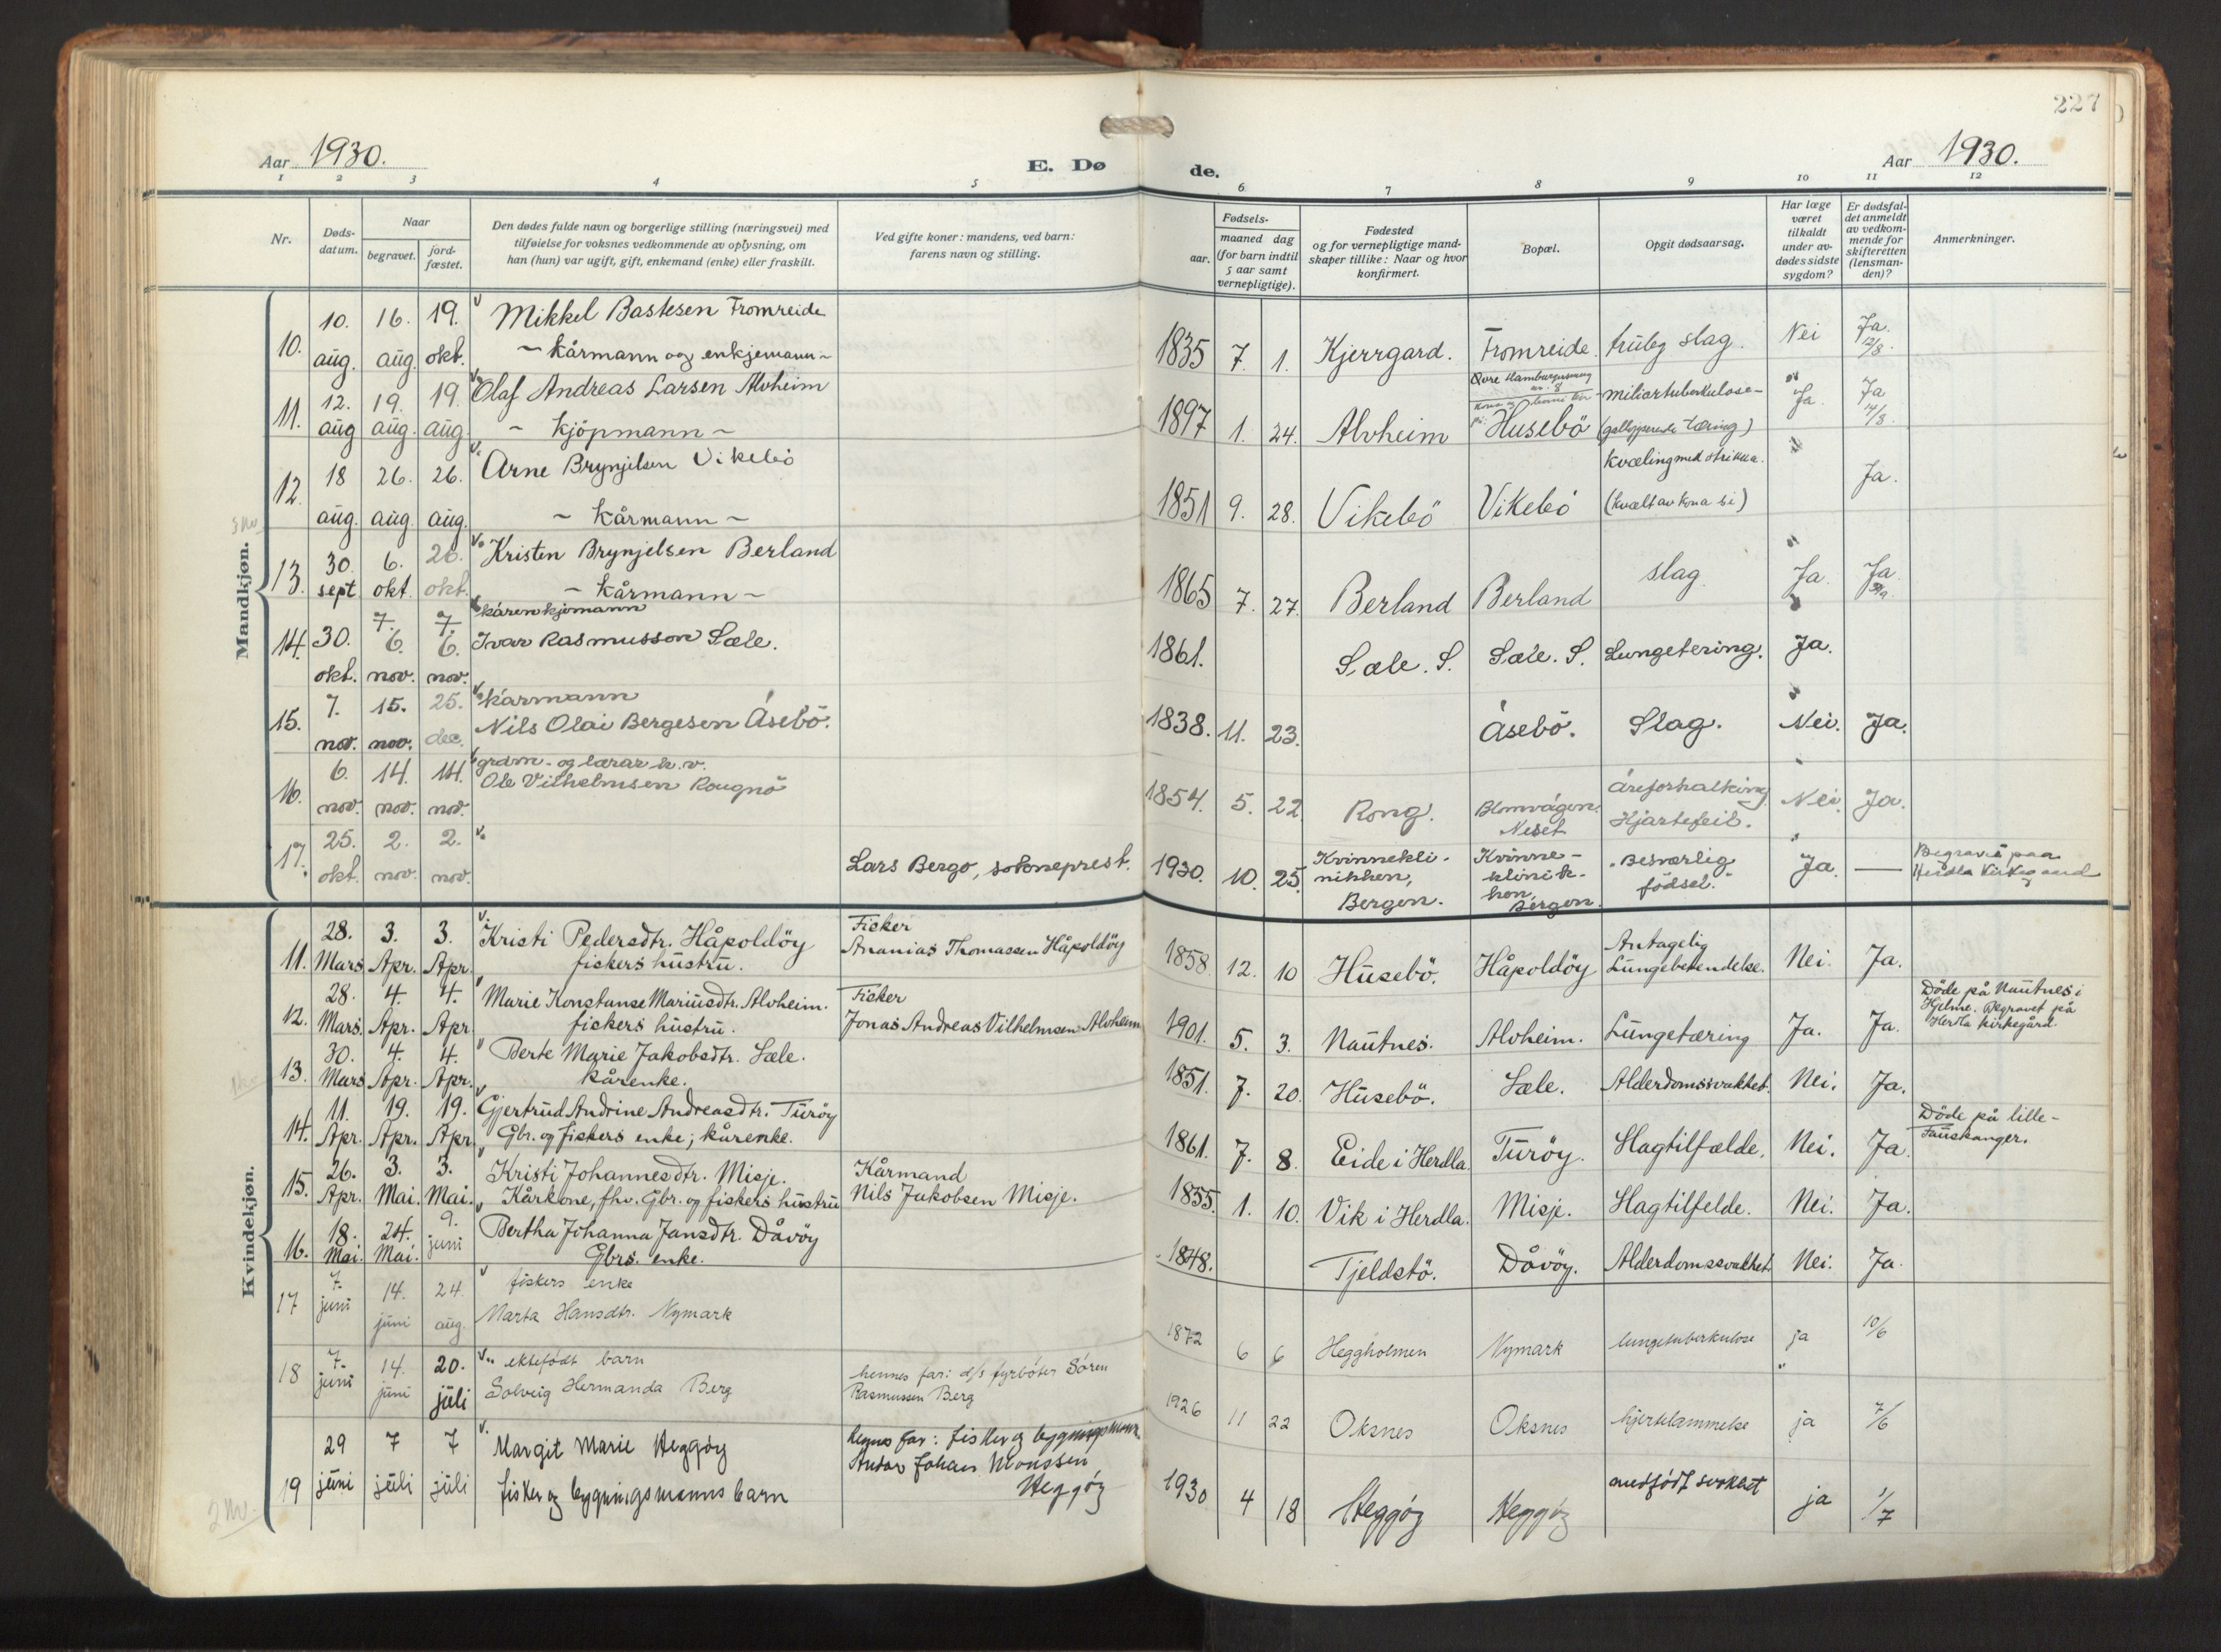 227
Aar 1930.
E. Dø
de.
Aar 1930.
1 2 3 4 5 6 7 8 9 10 11 12
Nr.
Døds-
datum.
Naar
begravet.
jord-
fæstet.
Den dødes fulde navn og borgerlige stilling (næringsvei) med
tilføielse for voksnes vedkommende av oplysning, om
han (hun) var ugift, gift, enkemand (enke) eller fraskilt.
Ved gifte koner: mandens, ved barn:
farens navn og stilling.
Fødsels-
aar.
maaned dag
(for barn indtil
5 aar samt
vernepligtige).
Fødested
og for vernepligtige mand-
skaper tillike: Naar og hvor
konfirmert.
Bopæl.
Opgit dødsaarsag.
Har læge
været
tilkaldt
under av-
dødes sidste
sygdom?
Er dødsfal-
det anmeldt
av vedkom-
mende for
skifteretten
(lensman-
den)?
Anmerkninger.
Mandkjøn.
10. 10. aug. 16. aug. 19. okt. Mikkel Bastesen Fromreide
~ kårmann og enkjemann ~
1835 7. 1. Kjerrgard. Fromreide. truleg slag. Nei Ja. 12/8.
11. 12. aug 19. aug. 19. aug. Olaf Andreas Larsen Alvheim
~ kjöpmann ~
1897 1. 24. Alvheim Husebö miliærtuberkulose- Ja. Ja 14/8.
12. 18 aug. 26. aug. 26. aug. Arne Brynjelsen Vikebö
~ kårmann ~
1851 9. 28. Vikebö Vikebö Kvæling med strikka.
(kvælt av kona si) Ja.
13. 30. sept 6. okt. 26. okt. Kristen Brynjelsen Berland
~ kårmann ~
1865 7. 27. Berland Berland slag. Ja. Ja
14. 30. okt. 7. 6. nov. 7. 6. nov. kårenkjemann
Ivar Rasmusson Sæle.
1861. Sæle. S. Sæle. S. Lungetering. Ja.
15. 7. nov. 15. nov. 25. dec. kårmann
Nils Olai Bergesen Åsebö.
1838. 11. 23. Åsebö. Slag. Nei. Ja.
16. 6. nov. 14. nov. 14. nov. grdm. og lærar h.v.
Ole Vilhelmsen Rougnö
1854. 5. 22. Rong. Blomvågen.
Neset Åreforkalking
Hjartefeil. Nei. Ja.
17. 25. okt. 2. nov. 2. nov. Lars Bergo, sokneprest.
1930. 10. 25. Kvinnekli-
nikken,
Bergen. Kvinne-
klinik-
ken,
Bergen. "Besværlig
födsel." Ja. — Begravet paa
Herdla Kirkegaard
Kvindekjøn.
11. 28. Mars 3. Apr. 3. Apr. Kristi Pedersdtr. Håpoldöy
fiskers hustru.
Fisker
Ananias Thomassen Håpoldöy
1858. 12. 10 Husebö. Håpoldöy Antagelig
Lungebetendelse. Nei. Ja.
12. 28. Mars. 4. Apr. 4. Apr Marie Konstanse Mariusdtr. Alvheim.
fiskers hustru.
Fisker
Jonas Andreas Vilhelmsen Alvheim
1901. 5. 3. Nautnes. Alvheim. Lungetæring Ja. Ja. Döde på Nautnes i
Hjelme. Begravet på
Herdla kirkegård.
13. 30. Mars 4. Apr. 4. Apr. Berte Marie Jakobsdtr. Sæle.
Kårenke.
1851. 7. 20. Husebö. Sæle. Alderdomssvakhet. Nei. Ja.
14. 11. Apr. 19. Apr. 19. Apr. Gjertrud Andrine Andreasdtr. Turöy
Gbr. og fiskers enke; kårenke.
1861. 7. 8. Eide i Herdla. Turöy. Slagtilfælde. Nei. Ja. Döde på lille-
Fauskanger.
15. 26. Apr. 3. Mai. 3. Mai. Kristi Johannesdtr. Misje.
Kårkone, fhv. Gbr. og fiskers hustru
Kårmand
Nils Jakobsen Misje.
1855. 1. 10. Vik i Herdla. Misje. Slagtilfelde. Nei. Ja.
16. 18. Mai. 24. Mai. 9. juni Bertha Johanna Jansdtr. Dåvöy
Gbrs. enke.
1848. Tjeldstö. Dåvöy. Alderdomssvakhet. Nei. Ja.
17 7. juni 14. juni 24. aug. fiskers enke
Marta Hansdtr. Nymark
1872 6 6 Heggholmen Nymark lungetuberkulose ja 10/6
18 7. juni 14. juni 20. juli ektefödt barn
Solveig Hermanda Berg
hennes far: d/s fyrböter Sören
Rasmussen Berg
1926 11 22 Oksnes Oksnes hjertelammelse ja 7/6
19 29 juni 7 juli 7 juli Margit Marie Heggöy
fisker og bygningsmanns barn
hennes far: fisker og bygningsmann
Johan Monssen
Heggöy
1930 4 18 Heggöy Heggöy medfödt svakhet ja 1/7